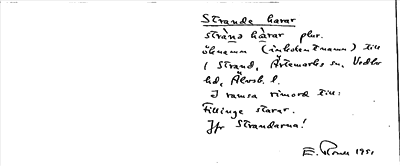 Strande harar
strànə hàrar plur.
öknamn (inbokentnamn) till
1 Strand, Ärtemarks sn, Vedbo
hd, Älvsb. l.
I ramsa rimord till:
Fillinge starar.
Jfr Strandarna!
E. 1951